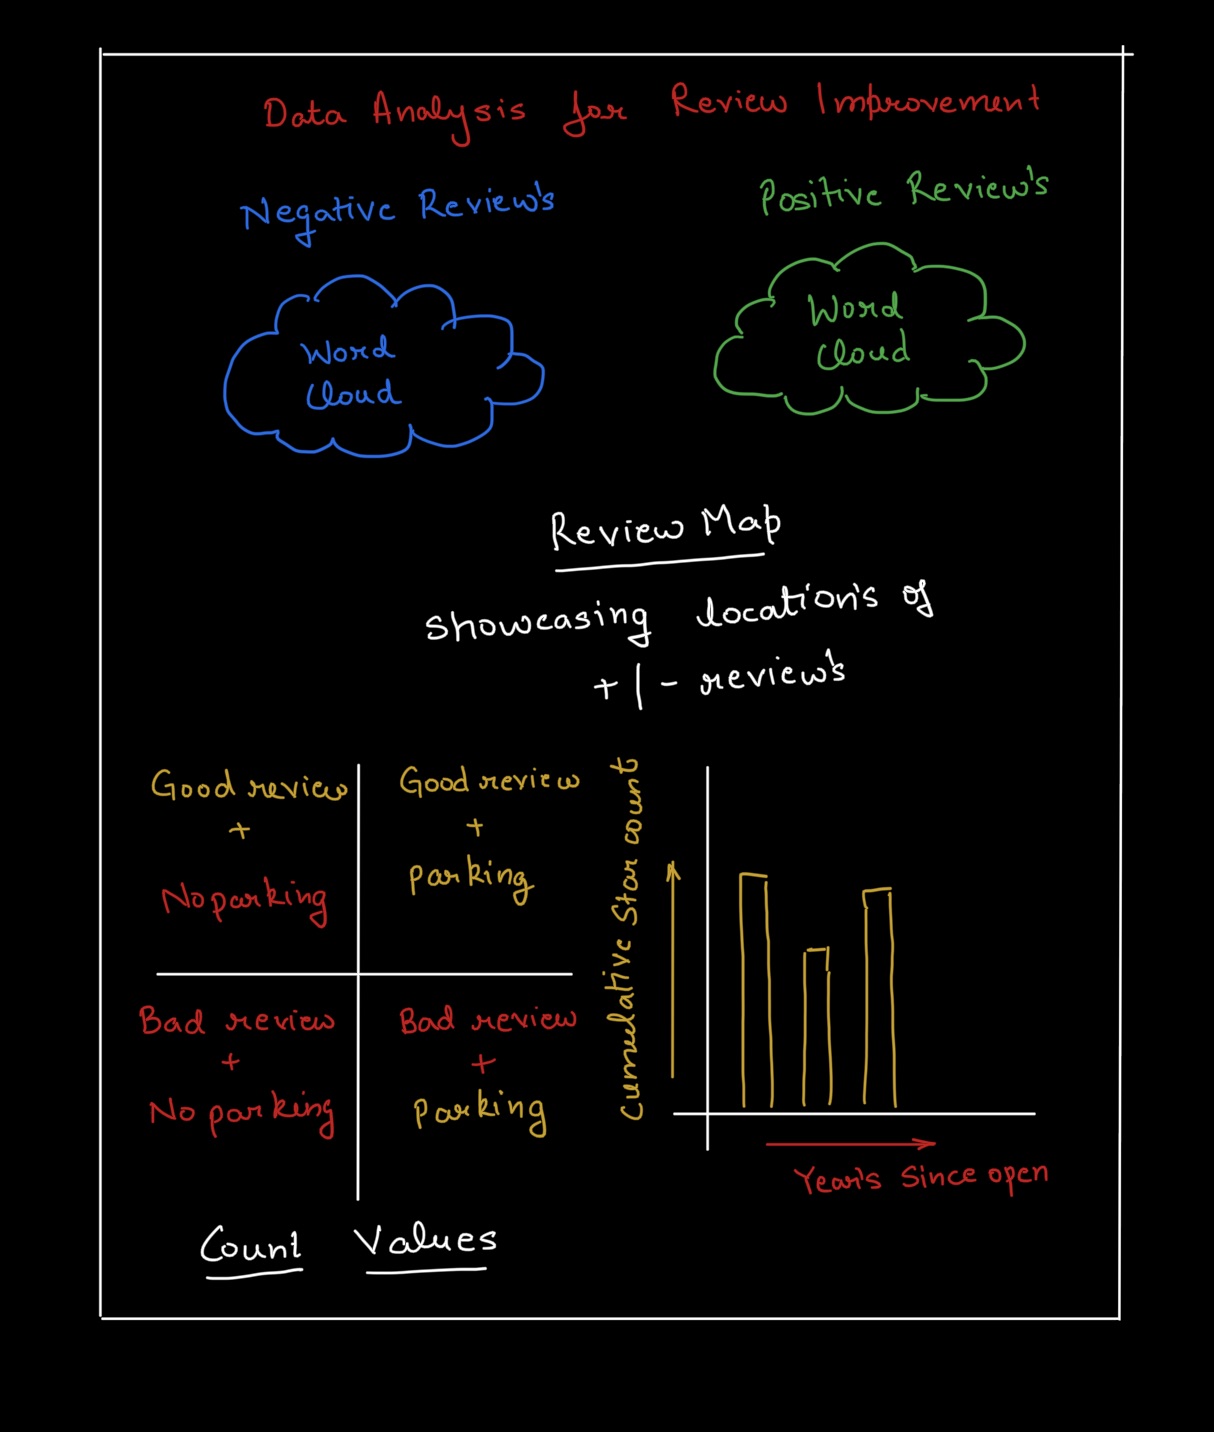 Data Analysis for Review Improvement
Negative Review's
Positive Review's
Word
Cloud
Word
Cloud
Review Map
showcasing location's of
+ | - review's
Good review
+
No parking
Good review
+
Parking
Bad review
+
No parking
Bad review
+
Parking
Count Values
Cumulative Star count
Year's Since open